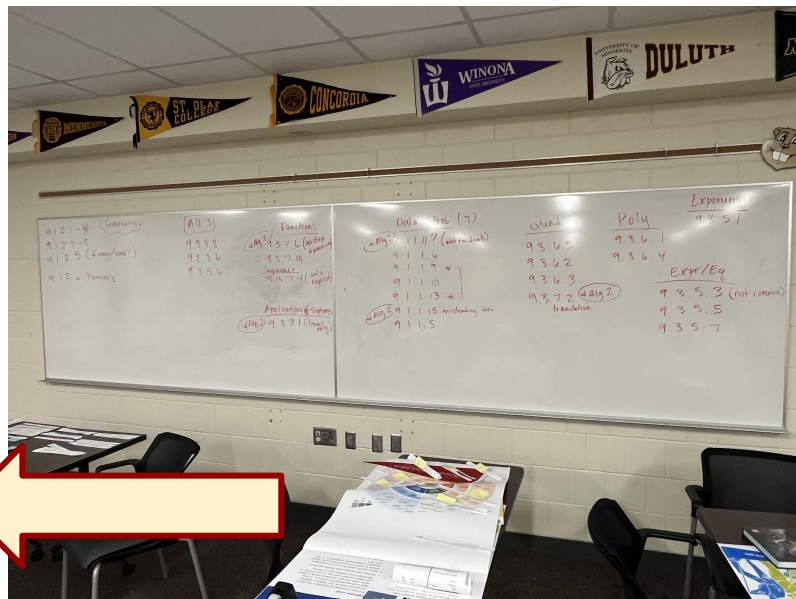 MINNESOTA
ST. OLAF
COLLEGE
CONCORDIA
WINONA
STATE UNIVERSITY
UNIVERSITY OF
MINNESOTA
DULUTH
Geometry
9.1.2.1-4
9.1.2.7-8
9.1.2.5
9.1.2.6
All 3
9.3.5.8
9.2.3.6
9.3.5.6
Functions
Alg 2 9.3.7.6
9.3.7.10
Sequence
9.3.7.4 (only
explicit)
Application of Systems
Alg 2 9.3.7.1
Data Prob (7)
Alg 2 9.1.1.1? (not residuals)
9.1.1.6
9.1.1.9
9.1.1.10
9.1.1.13
Alg 2 9.1.1.15 misleading data
9.1.1.5
Quad
9.3.6.5
9.3.6.2
9.3.6.3
9.3.7.2 Alg 2
translation
Poly
9.3.6.1
9.3.6.4
Exponents
9.3.5.1
Expr/Eq
9.3.5.3 (not complex)
9.3.5.5
9.3.5.7